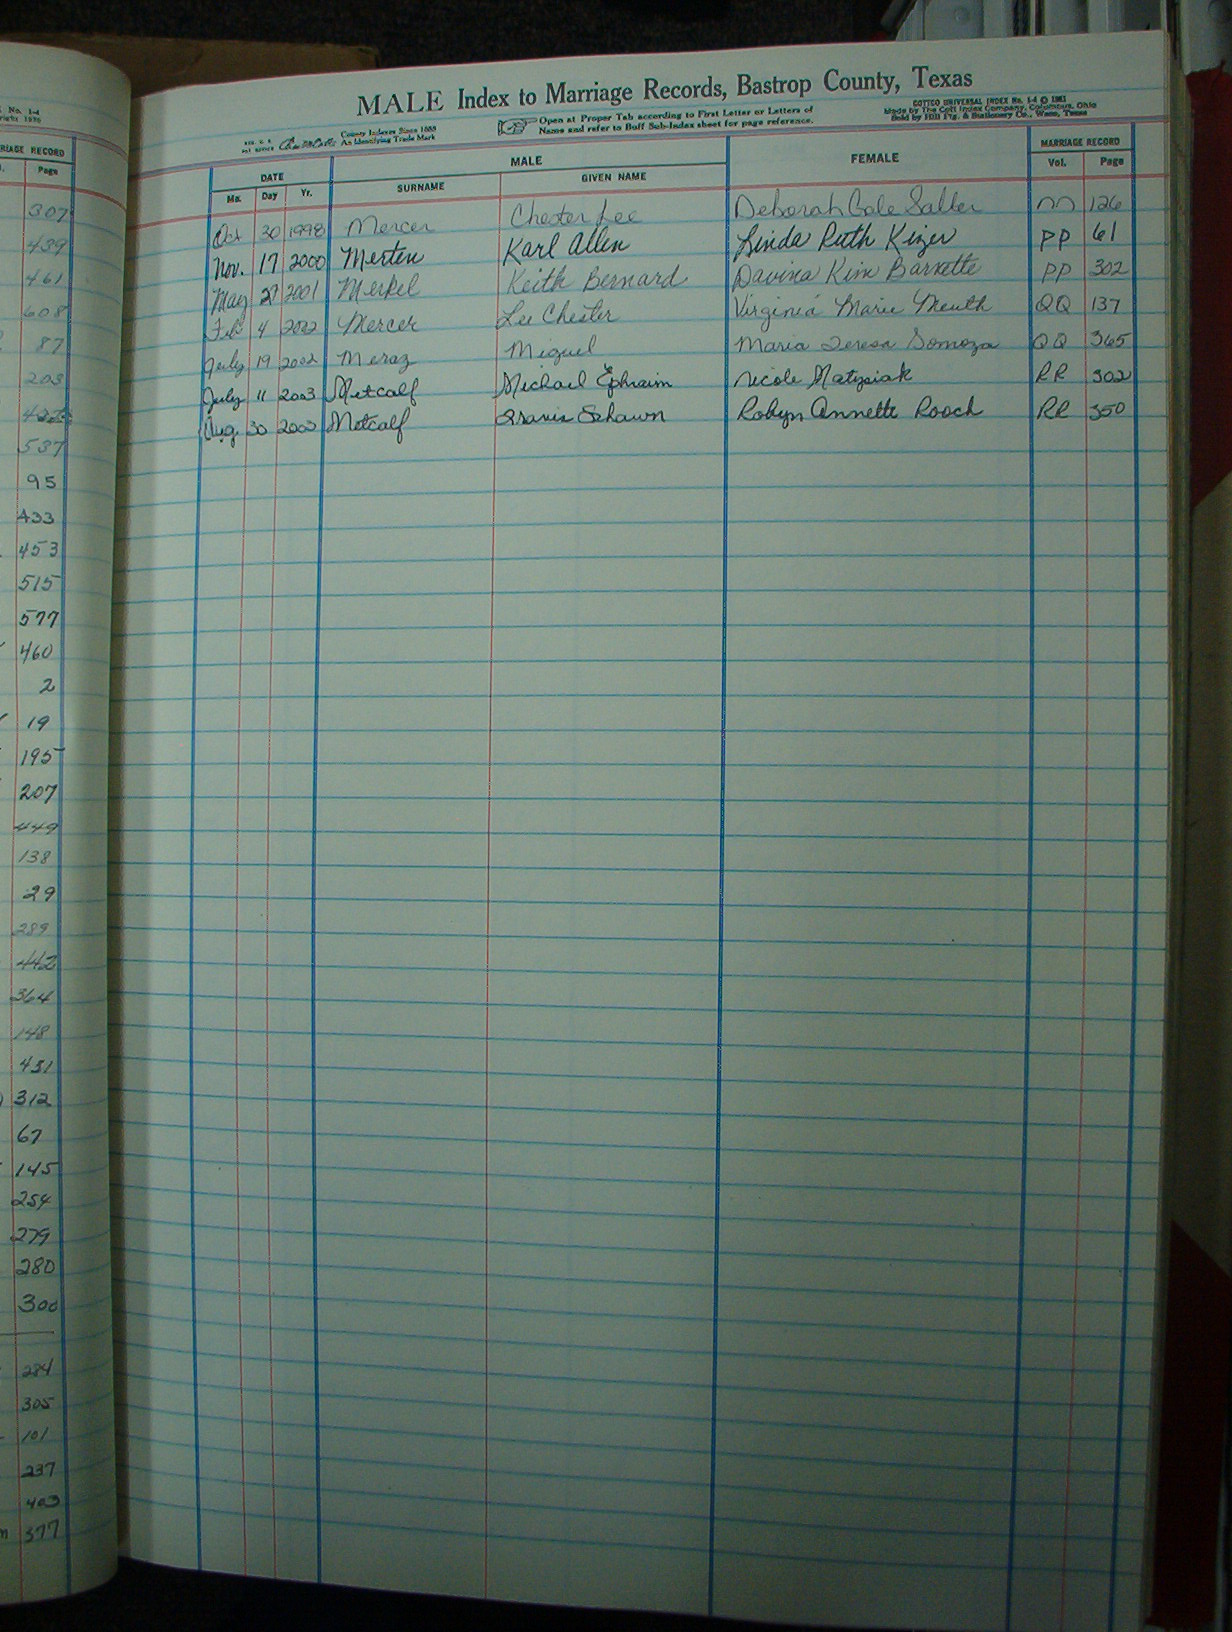 No. 1-4
MARRIAGE RECORD
Page
307
439
461
608
87
203
537
95
433
453
515
577
460
2
19
195
207
449
138
29
289
442
364
148
431
312
67
145
254
279
280
300
284
305
101
237
403
377
MALE Index to Marriage Records, Bastrop County, Texas
County Indexers Since 1888
An Identifying Trade Mark
Open at Proper Tab according to First Letter or Letters of
Name and refer to Buff Sub-Index sheet for page reference.
COTTCO UNIVERSAL INDEX No. 1-4 © 1961
Made by The Cott Index Company, Columbus, Ohio
Sold by Hill Ptg. & Stationery Co., Waco, Texas
DATE MALE FEMALE MARRIAGE RECORD
Mo. Day Yr. SURNAME GIVEN NAME Vol. Page
Oct 30 1998 Mercer Chester Lee Deborah Gale Salter NN 126
Nov. 17 2000 Merten Karl Allen Linda Ruth Kizer PP 61
May 27 2001 Merkel Keith Bernard Davina Kim Barnette PP 302
Feb 4 2002 Mercer Lee Chester Virginia Marie Meuth QQ 137
July 19 2002 Meraz Miguel Maria Teresa Somoza QQ 365
July 11 2003 Metcalf Michael Ephraim Nicole Matysiak RR 302
Aug. 30 2003 Metcalf Travis Schawn Robyn Annette Rooch RR 350